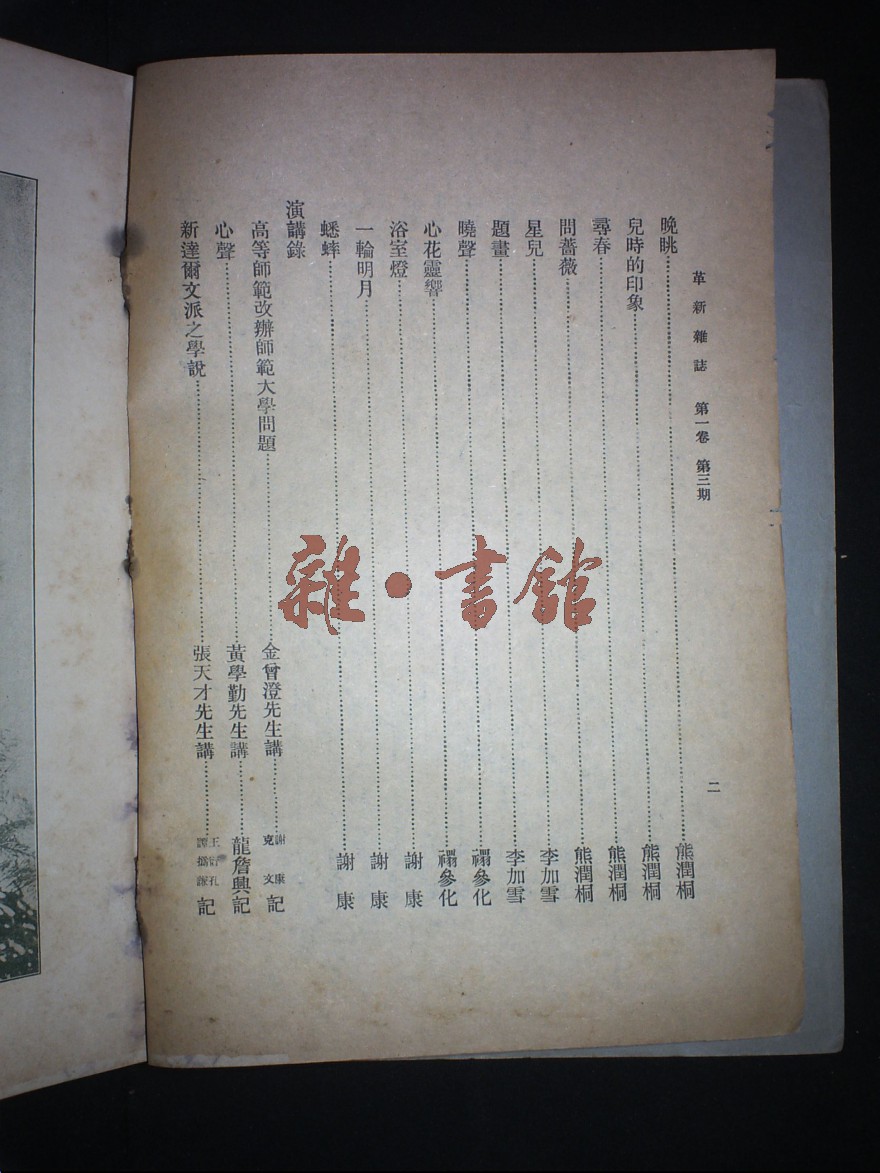 革新雜誌 第一卷 第三期
二
晚眺 熊潤桐
兒時的印象 熊潤桐
尋春 熊潤桐
問薔薇 熊潤桐
星兒 李加雪
題畫 李加雪
曉聲 禤參化
心花靈響 禤參化
浴室燈 謝康
一輪明月 謝康
蟋蟀 謝康
演講錄
高等師範改辦師範大學問題 金曾澄先生講 謝康 克文 記
心聲 黃學勤先生講 龍詹興記
新達爾文派之學說 張天才先生講 記
雜·書館